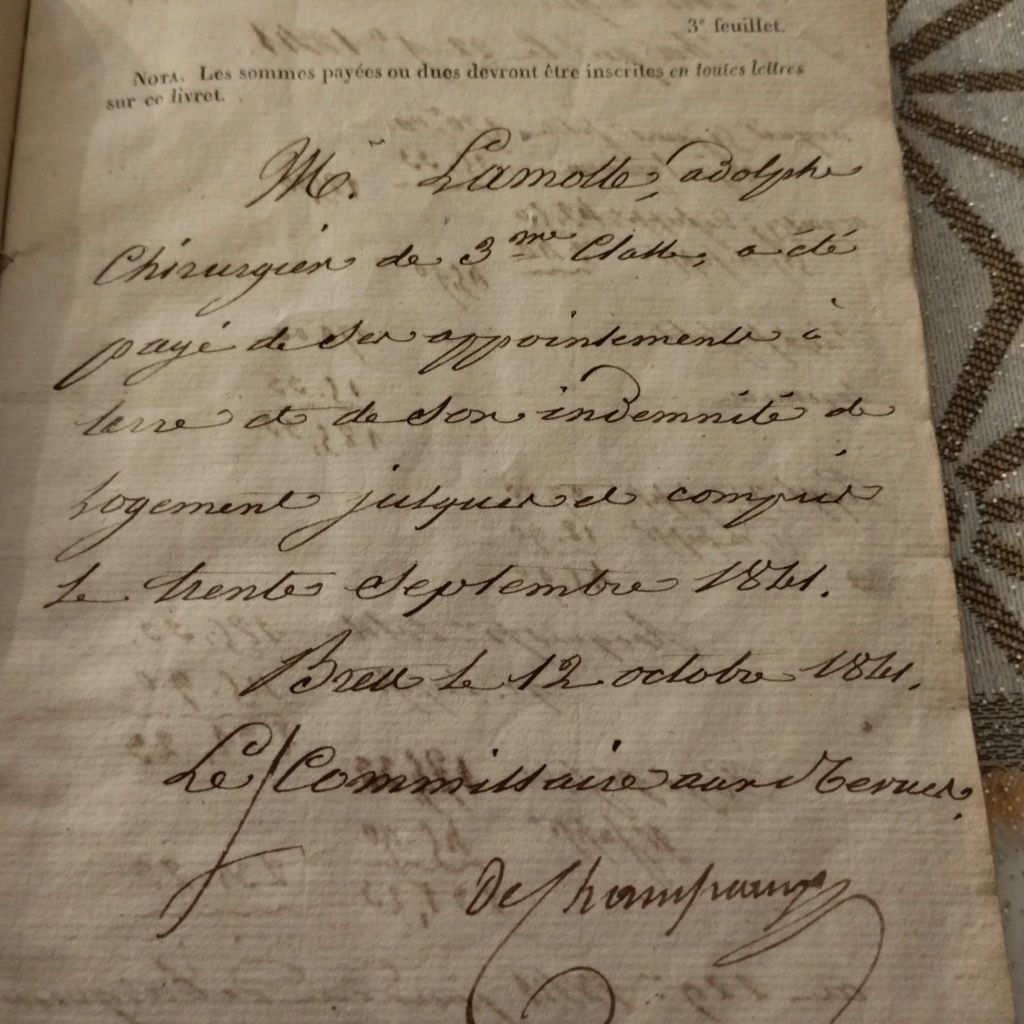 3e feuillet.
NOTA. Les sommes payées ou dues devront être inscrites en toutes lettres
sur ce livret.
Mr. Lamotte, adolphe
Chirurgien de 3me Classe, a été
payé de ses appointements à
terre et de son indemnité de
logement jusques et compris
le trente Septembre 1841.
Brest le 12 octobre 1841.
Le Commissaire aux Revues,